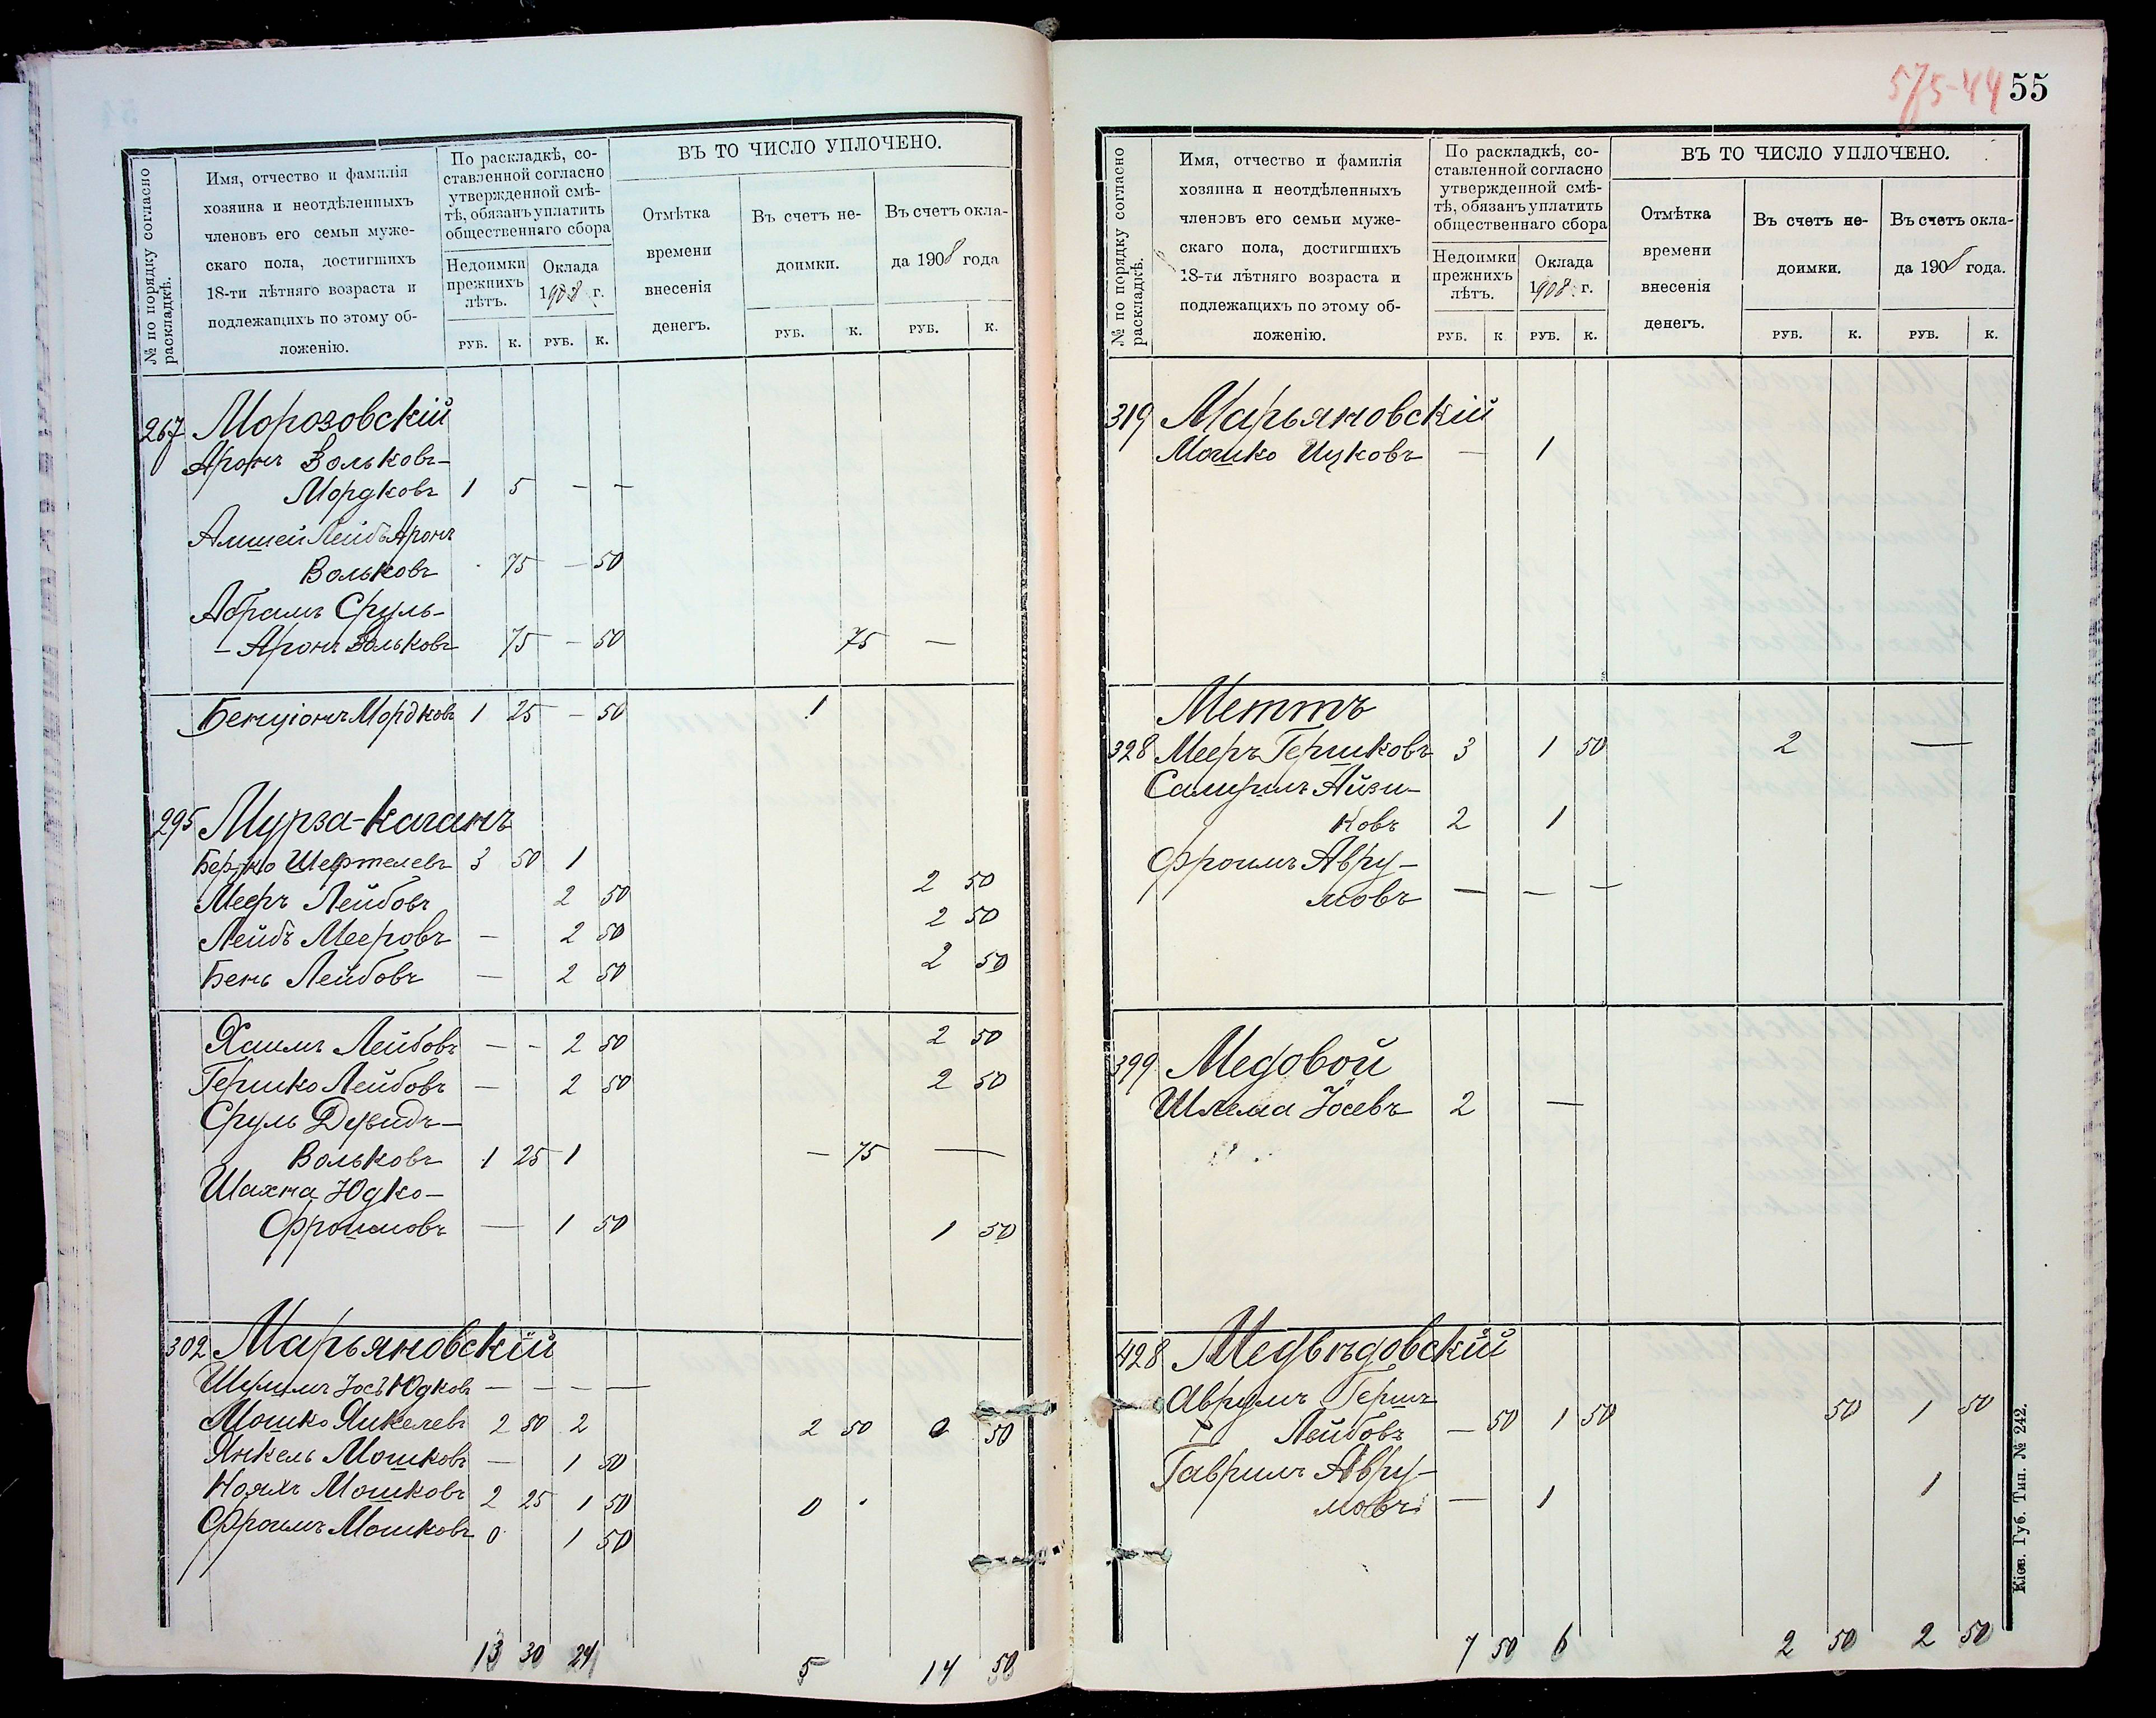 № по порядку согласно раскладкѣ.
Имя, отчество и фамилія
хозяина и неотдѣленныхъ
членовъ его семьи муже-
скаго пола, достигшихъ
18-ти лѣтняго возраста и
подлежащихъ по этому об-
ложенію.
По раскладкѣ, со-
ставленной согласно
утвержденной смѣ-
тѣ, обязанъ уплатить
общественнаго сбора
Недоимки
прежнихъ
лѣтъ.
Оклада
1908 г.
РУБ. К. РУБ. К.
ВЪ ТО ЧИСЛО УПЛОЧЕНО.
Отмѣтка
времени
внесенія
денегъ.
Въ счетъ не-
доимки.
РУБ. К.
Въ счетъ окла-
да 1908 года
РУБ. К.
267 Морозовскій
Аронъ Вольковъ-
Мордковъ 1 5 - -
Амшей Лейбъ Аронъ
Вольковъ 75 - 50
Абрамъ Сруль-
- Аронъ Вольковъ 75 - 50 75 -
Бенціонъ Мордковъ 1 25 - 50 1
295 Мурза-Каганъ
Берко Шефтелевъ 3 50 1
Мееръ Лейбовъ 2 50 2 50
Лейбъ Мееровъ - 2 50 2 50
Бень Лейбовъ - 2 50 2 50
Хаимъ Лейбовъ - - 2 50 2 50
Гершко Лейбовъ - 2 50 2 50
Сруль Дувидъ-
Вольковъ 1 25 1 - 75 -
Шахна Юдко-
Фроимовъ - 1 50 1 50
302 Марьяновскій
Шулимъ Іосъ Юдковъ - - - -
Мошко Янкелевъ 2 50 2 2 50 0 50
Янкель Мошковъ - 1 50
Нояхъ Мошковъ 2 25 1 50 0
Фроимъ Мошковъ 0 1 50
13 30 24 5 14 50
575-44 55
№ по порядку согласно раскладкѣ.
Имя, отчество и фамилія
хозяина и неотдѣленныхъ
членовъ его семьи муже-
скаго пола, достигшихъ
18-ти лѣтняго возраста и
подлежащихъ по этому об-
ложенію.
По раскладкѣ, со-
ставленной согласно
утвержденной смѣ-
тѣ, обязанъ уплатить
общественнаго сбора
Недоимки
прежнихъ
лѣтъ.
Оклада
1908 г.
РУБ. К РУБ. К.
ВЪ ТО ЧИСЛО УПЛОЧЕНО.
Отмѣтка
времени
внесенія
денегъ.
Въ счетъ не-
доимки.
РУБ. К.
Въ счетъ окла-
да 1908 года.
РУБ. К.
319 Марьяновскій
Мошко Ицковъ - 1
Меттъ
328 Мееръ Гершковъ 3 1 50 2 -
Айзи-
ковъ 2 1
Фроимъ Авру-
мовъ - - -
399 Медовой
Шлема Іосевъ 2 -
428 Медвѣдовскій
Аврумъ Гершъ
Лейбовъ - 50 1 50 50 1 50
Гаврилъ Авру-
мовъ - 1 1
7 50 6 2 50 2 50
Кіев. Губ. Тип. № 242.